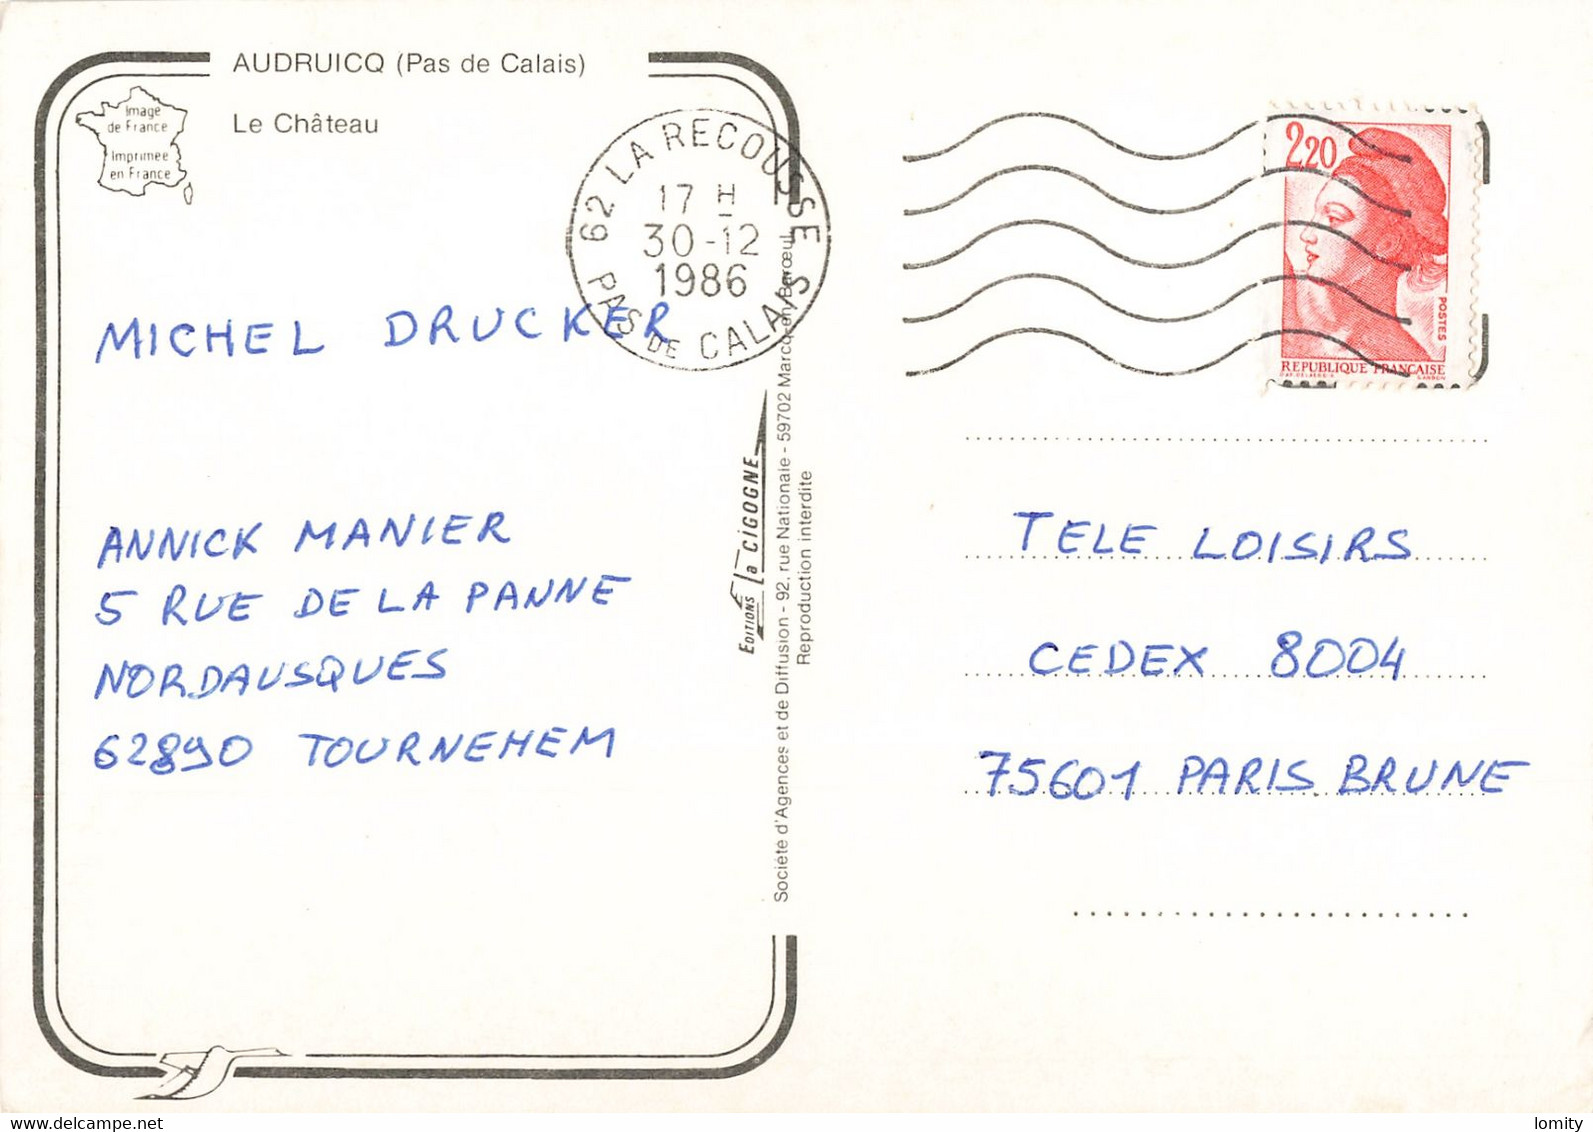 AUDRUICQ (Pas de Calais)
Le Château
Image
de France
Imprimée
en France
62 LA RECOUSSE
17 H
30-12
1986
PAS DE CALAIS
2,20
POSTES
REPUBLIQUE FRANÇAISE
MICHEL DRUCKER
ANNICK MANIER
5 RUE DE LA PANNE
NORDAUSQUES
62890 TOURNEHEM
EDITIONS La CIGOGNE
Société d'Agences et de Diffusion - 92, rue Nationale - 59702 Marcq-en-Barœul
Reproduction interdite
TELE LOISIRS
CEDEX 8004
75601 PARIS BRUNE
www.delcampe.net
lomity